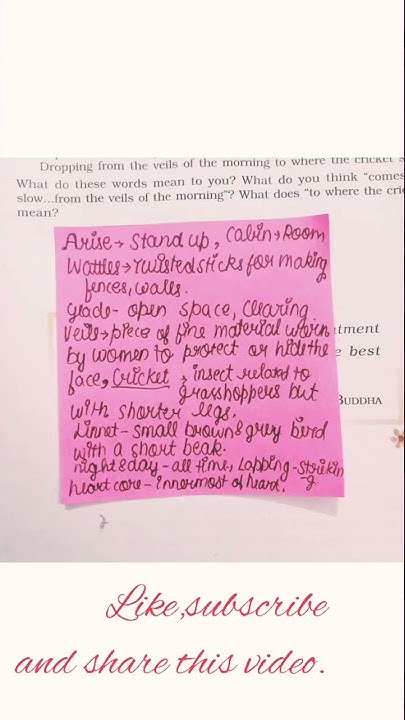 Dropping from the veils of the morning to where the cricket s
What do these words mean to you? What do you think "comes
slow...from the veils of the morning"? What does "to where the cri
mean?
Arise → Stand up, Cabin → Room
Wattles → Twisted sticks for making
fences, walls.
glade - open space, Clearing
Veils → piece of fine material worn
by women to protect or hide the
face, Cricket → insect related to
grasshoppers but
with shorter legs.
Linnet - small brown & grey bird
with a short beak.
night & day - all time, Lapping - Strikin
g
heart core - innermost of heart.
tment
e best
BUDDHA
2
Like, subscribe
and share this video.